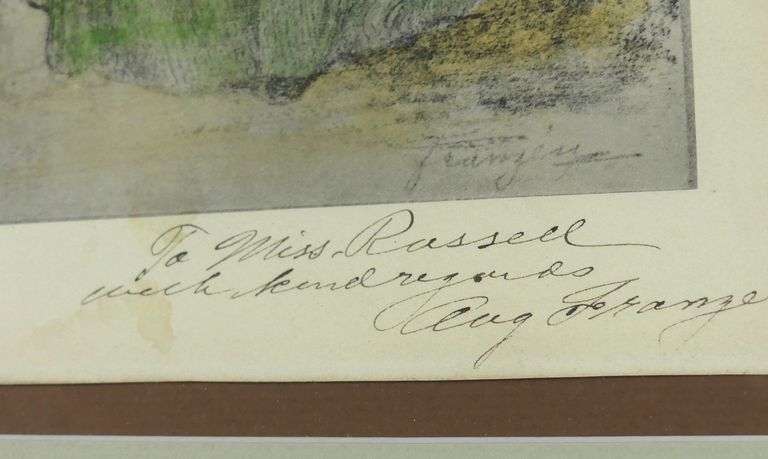 Franzén
To Miss Russell
with kind regards
Aug Franze